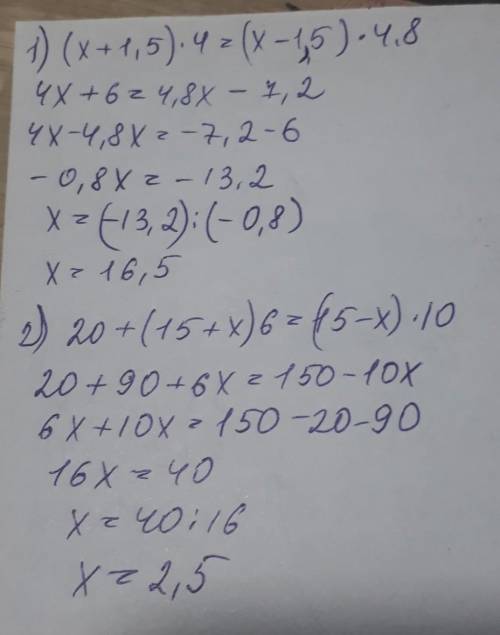 1) (x+1,5)·4=(x-1,5)·4,8
4x+6=4,8x-7,2
4x-4,8x=-7,2-6
-0,8x=-13,2
x=(-13,2):(-0,8)
x=16,5
2) 20+(15+x)6=(15-x)·10
20+90+6x=150-10x
6x+10x=150-20-90
16x=40
x=40:16
x=2,5